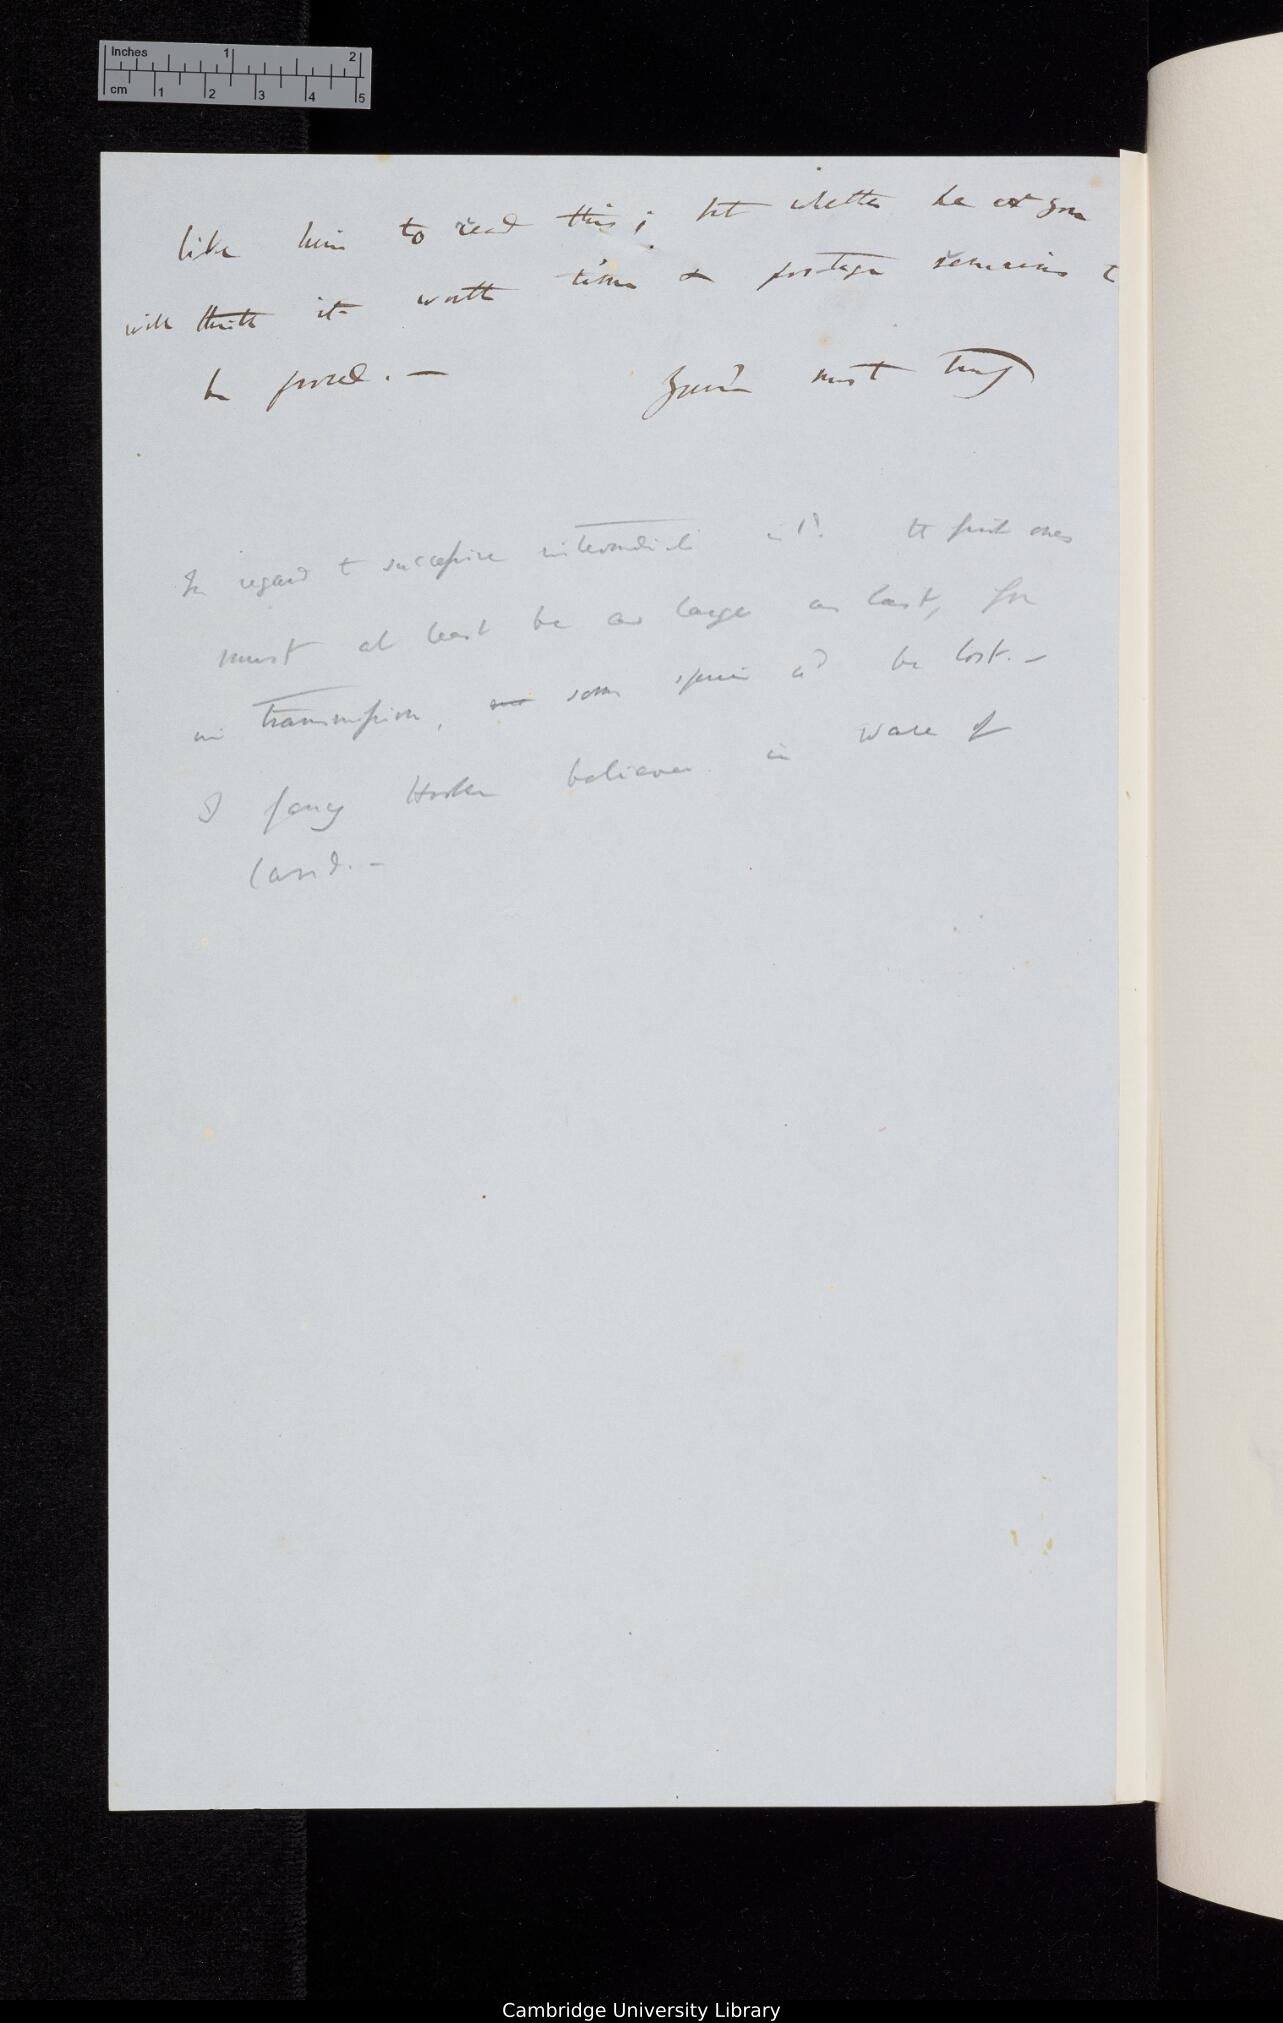 Inches 1 2
cm 1 2 3 4 5
like him to read this; but whether he or you
will think it worth time & postage remains t
be proved. —
Your's most truly
In regard t successive intermedi isld. tt first ones
must at least be as large as last, for
in transmission, some species wd be lost. —
I fancy Hooker believes in wave of
land. —
Cambridge University Library